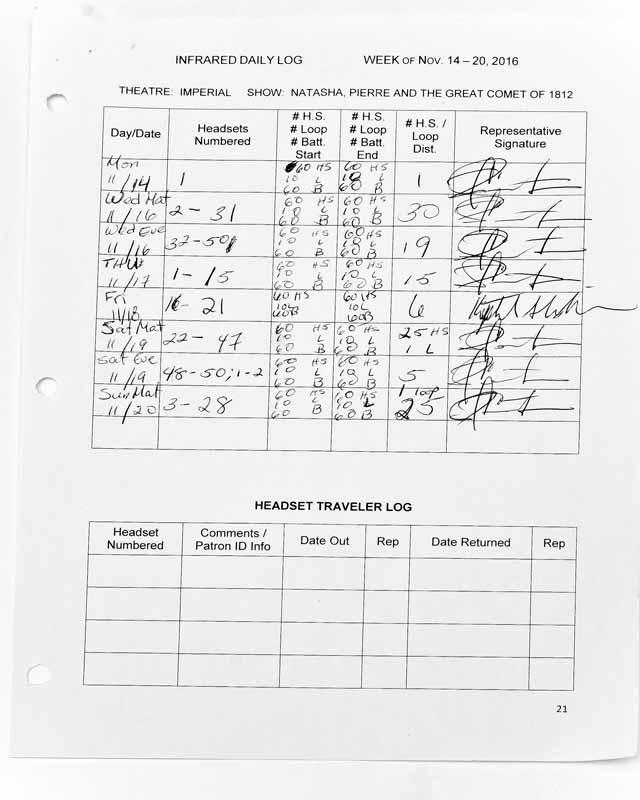 INFRARED DAILY LOG WEEK OF NOV. 14 – 20, 2016
THEATRE: IMPERIAL SHOW: NATASHA, PIERRE AND THE GREAT COMET OF 1812
Day/Date
Headsets
Numbered
# H.S.
# Loop
# Batt.
Start
# H.S.
# Loop
# Batt.
End
# H.S. /
Loop
Dist.
Representative
Signature
Mon
11/14
1
60 HS
10 L
60 B
60 HS
10 L
60 B
1
Wed Mat
11/16
2 - 31
60 HS
10 L
60 B
60 HS
10 L
60 B
30
Wed Eve
11/16
32-50
60 HS
10 L
60 B
60 HS
10 L
60 B
19
THU
11/17
1-15
60 HS
10 L
60 B
60 HS
10 L
60 B
15
Fri
11/18
16- 21
60 HS
10L
60B
60 HS
10L
60B
6
Sat Mat
11/19
22 - 47
60 HS
10 L
60 B
60 HS
10 L
60 B
25 HS
1 L
Sat Eve
11/19
48-50; 1-2
60 HS
10 L
60 B
60 HS
10 L
60 B
5
Sun Mat
11/20
3-28
60 HS
10 L
60 B
60 HS
10 L
60 B
1 loop
25
HEADSET TRAVELER LOG
Headset
Numbered
Comments /
Patron ID Info
Date Out
Rep
Date Returned
Rep
21